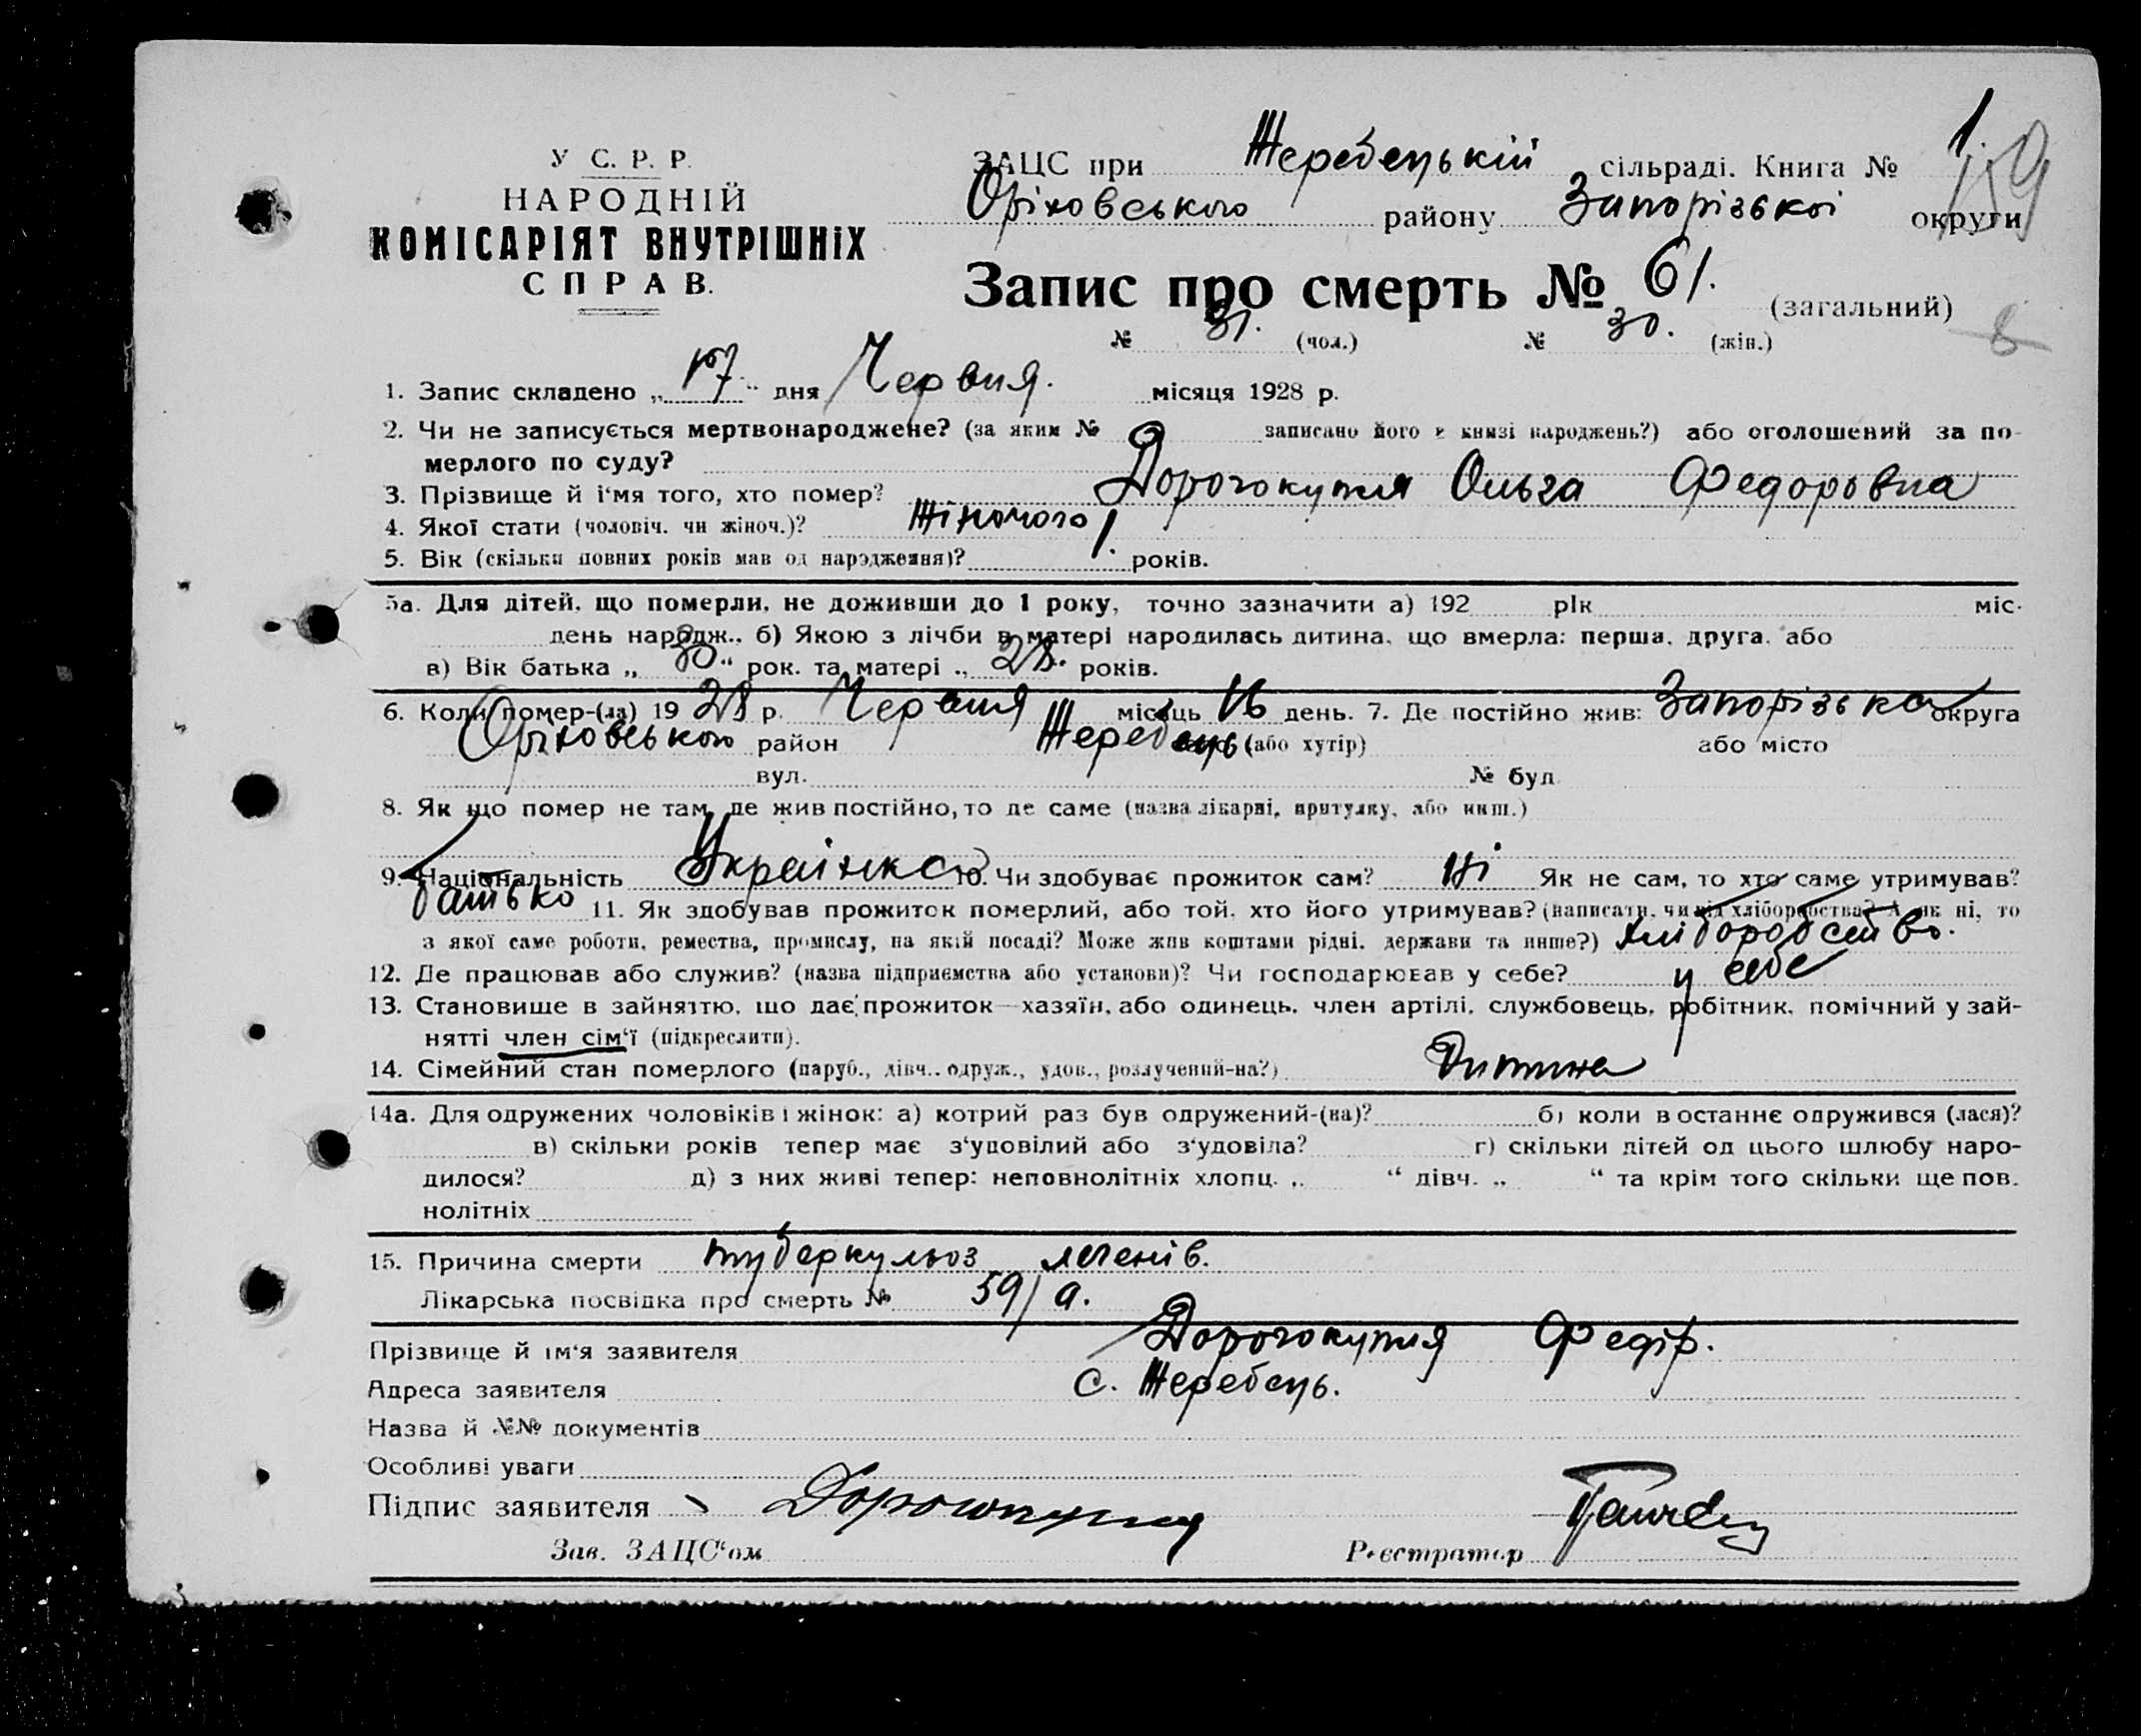 У С. Р. Р.
НАРОДНІЙ
КОМІСАРІЯТ ВНУТРІШНІХ
СПРАВ.
ЗАЦС при Жеребецькій сільраді. Книга № 1.
159
Оріховського району Запорізької округи
Запис про смерть № 61. (загальний)
№ 31. (чол.) № 30. (жін.)
8
1. Запис складено „17" дня Червня. місяця 1928 р.
2. Чи не записується мертвонароджене? (за яким № записано його в книзі народжень?) або оголошений за по-
мерлого по суду?
3. Прізвище й і'мя того, хто помер? Дорогокупля Ольга Федоровна
4. Якої стати (чоловіч. чи жіноч.)? Жіночого
5. Вік (скільки повних років мав од народження)? 1. років.
5а. Для дітей, що померли, не доживши до 1 року, точно зазначити а) 192 рік міс.
день народж.. б) Якою з лічби в матері народилась дитина, що вмерла: перша, друга, або
в) Вік батька „30" рок. та матері „28." років.
6. Коли помер-(ла) 1928 р. Червня місяць 16 день. 7. Де постійно жив: Запорізька округа
Оріховського район Жеребець (або хутір) або місто
вул. № буд.
8. Як що помер не там, де жив постійно, то де саме (назва лікарні, притулку, або инш.)
9. Національність Українка 10. Чи здобуває прожиток сам? ні Як не сам, то хто саме утримував?
батько 11. Як здобував прожиток померлий, або той, хто його утримував? (написати, чи від хліборобства? А як ні, то
з якої саме роботи, ремества, промислу, на якій посаді? Може жив коштами рідні, держави та инше?) хліборобство.
12. Де працював або служив? (назва підприємства або установи)? Чи господарював у себе? у себе
13. Становище в зайняттю, що дає прожиток—хазяїн, або одинець, член артілі, службовець, робітник, помічний у зай-
нятті член сім'ї (підкреслити).
14. Сімейний стан померлого (паруб., дівч.. одруж., удов., розлучений-на?) Дитина
14а. Для одружених чоловіків і жінок: а) котрий раз був одружений-(на)? б) коли востаннє одружився (лася)?
в) скільки років тепер має з'удовілий або з'удовіла? г) скільки дітей од цього шлюбу наро-
дилося? д) з них живі тепер: неповнолітніх хлопц. „ “ дівч. „ “ та крім того скільки ще пов.
нолітніх
15. Причина смерти туберкульоз легенів.
Лікарська посвідка про смерть № 59/а.
Прізвище й ім'я заявителя Дорогокупля Федір.
Адреса заявителя с. Жеребець.
Назва й №№ документів
Особливі уваги
Підпис заявителя Дорогокупля
Зав. ЗАЦС'ом Реєстратор